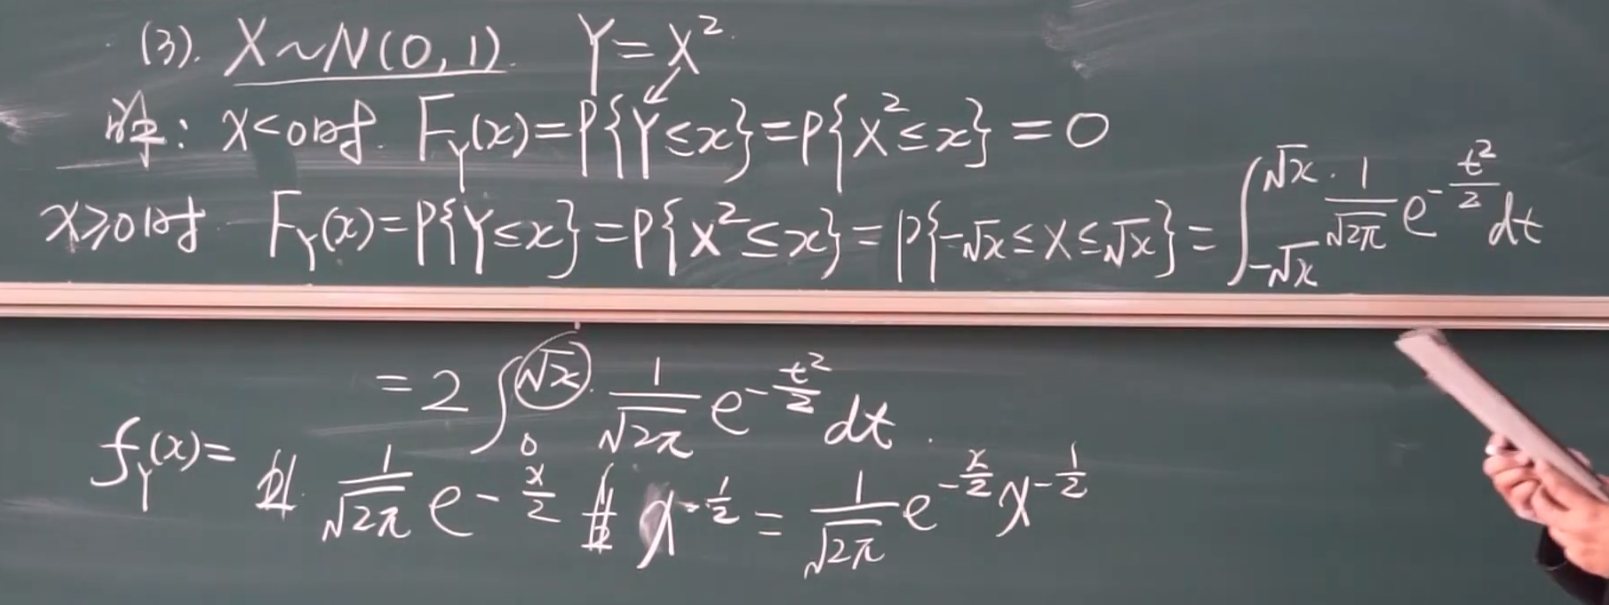 (3). X~N(0,1) Y=X²
解: x<0时. F_Y(x)=P{Y≤x}=P{X²≤x}=0
x≥0时 F_Y(x)=P{Y≤x}=P{X²≤x}=P{-√x≤X≤√x}=∫_{-√x}^{√x} 1/√2π e^{-t²/2}dt
=2∫_0^{√x} 1/√2π e^{-t²/2}dt.
f_Y(x)= 2· 1/√2π e^{-x/2} 1/2 x^{-1/2} = 1/√2π e^{-x/2} x^{-1/2}